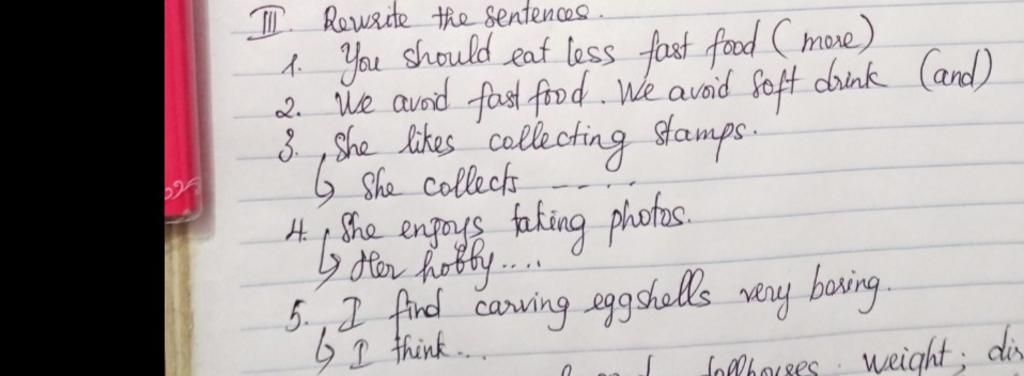 III. Rewrite the sentences.
1. You should eat less fast food (more)
2. We avoid fast food. We avoid soft drink (and)
3. She likes collecting stamps.
↳ She collects - - - . .
4. She enjoys taking photos.
↳ Her hobby....
5. I find carving eggshells very boring.
↳ I think...
dollhouses. weight;